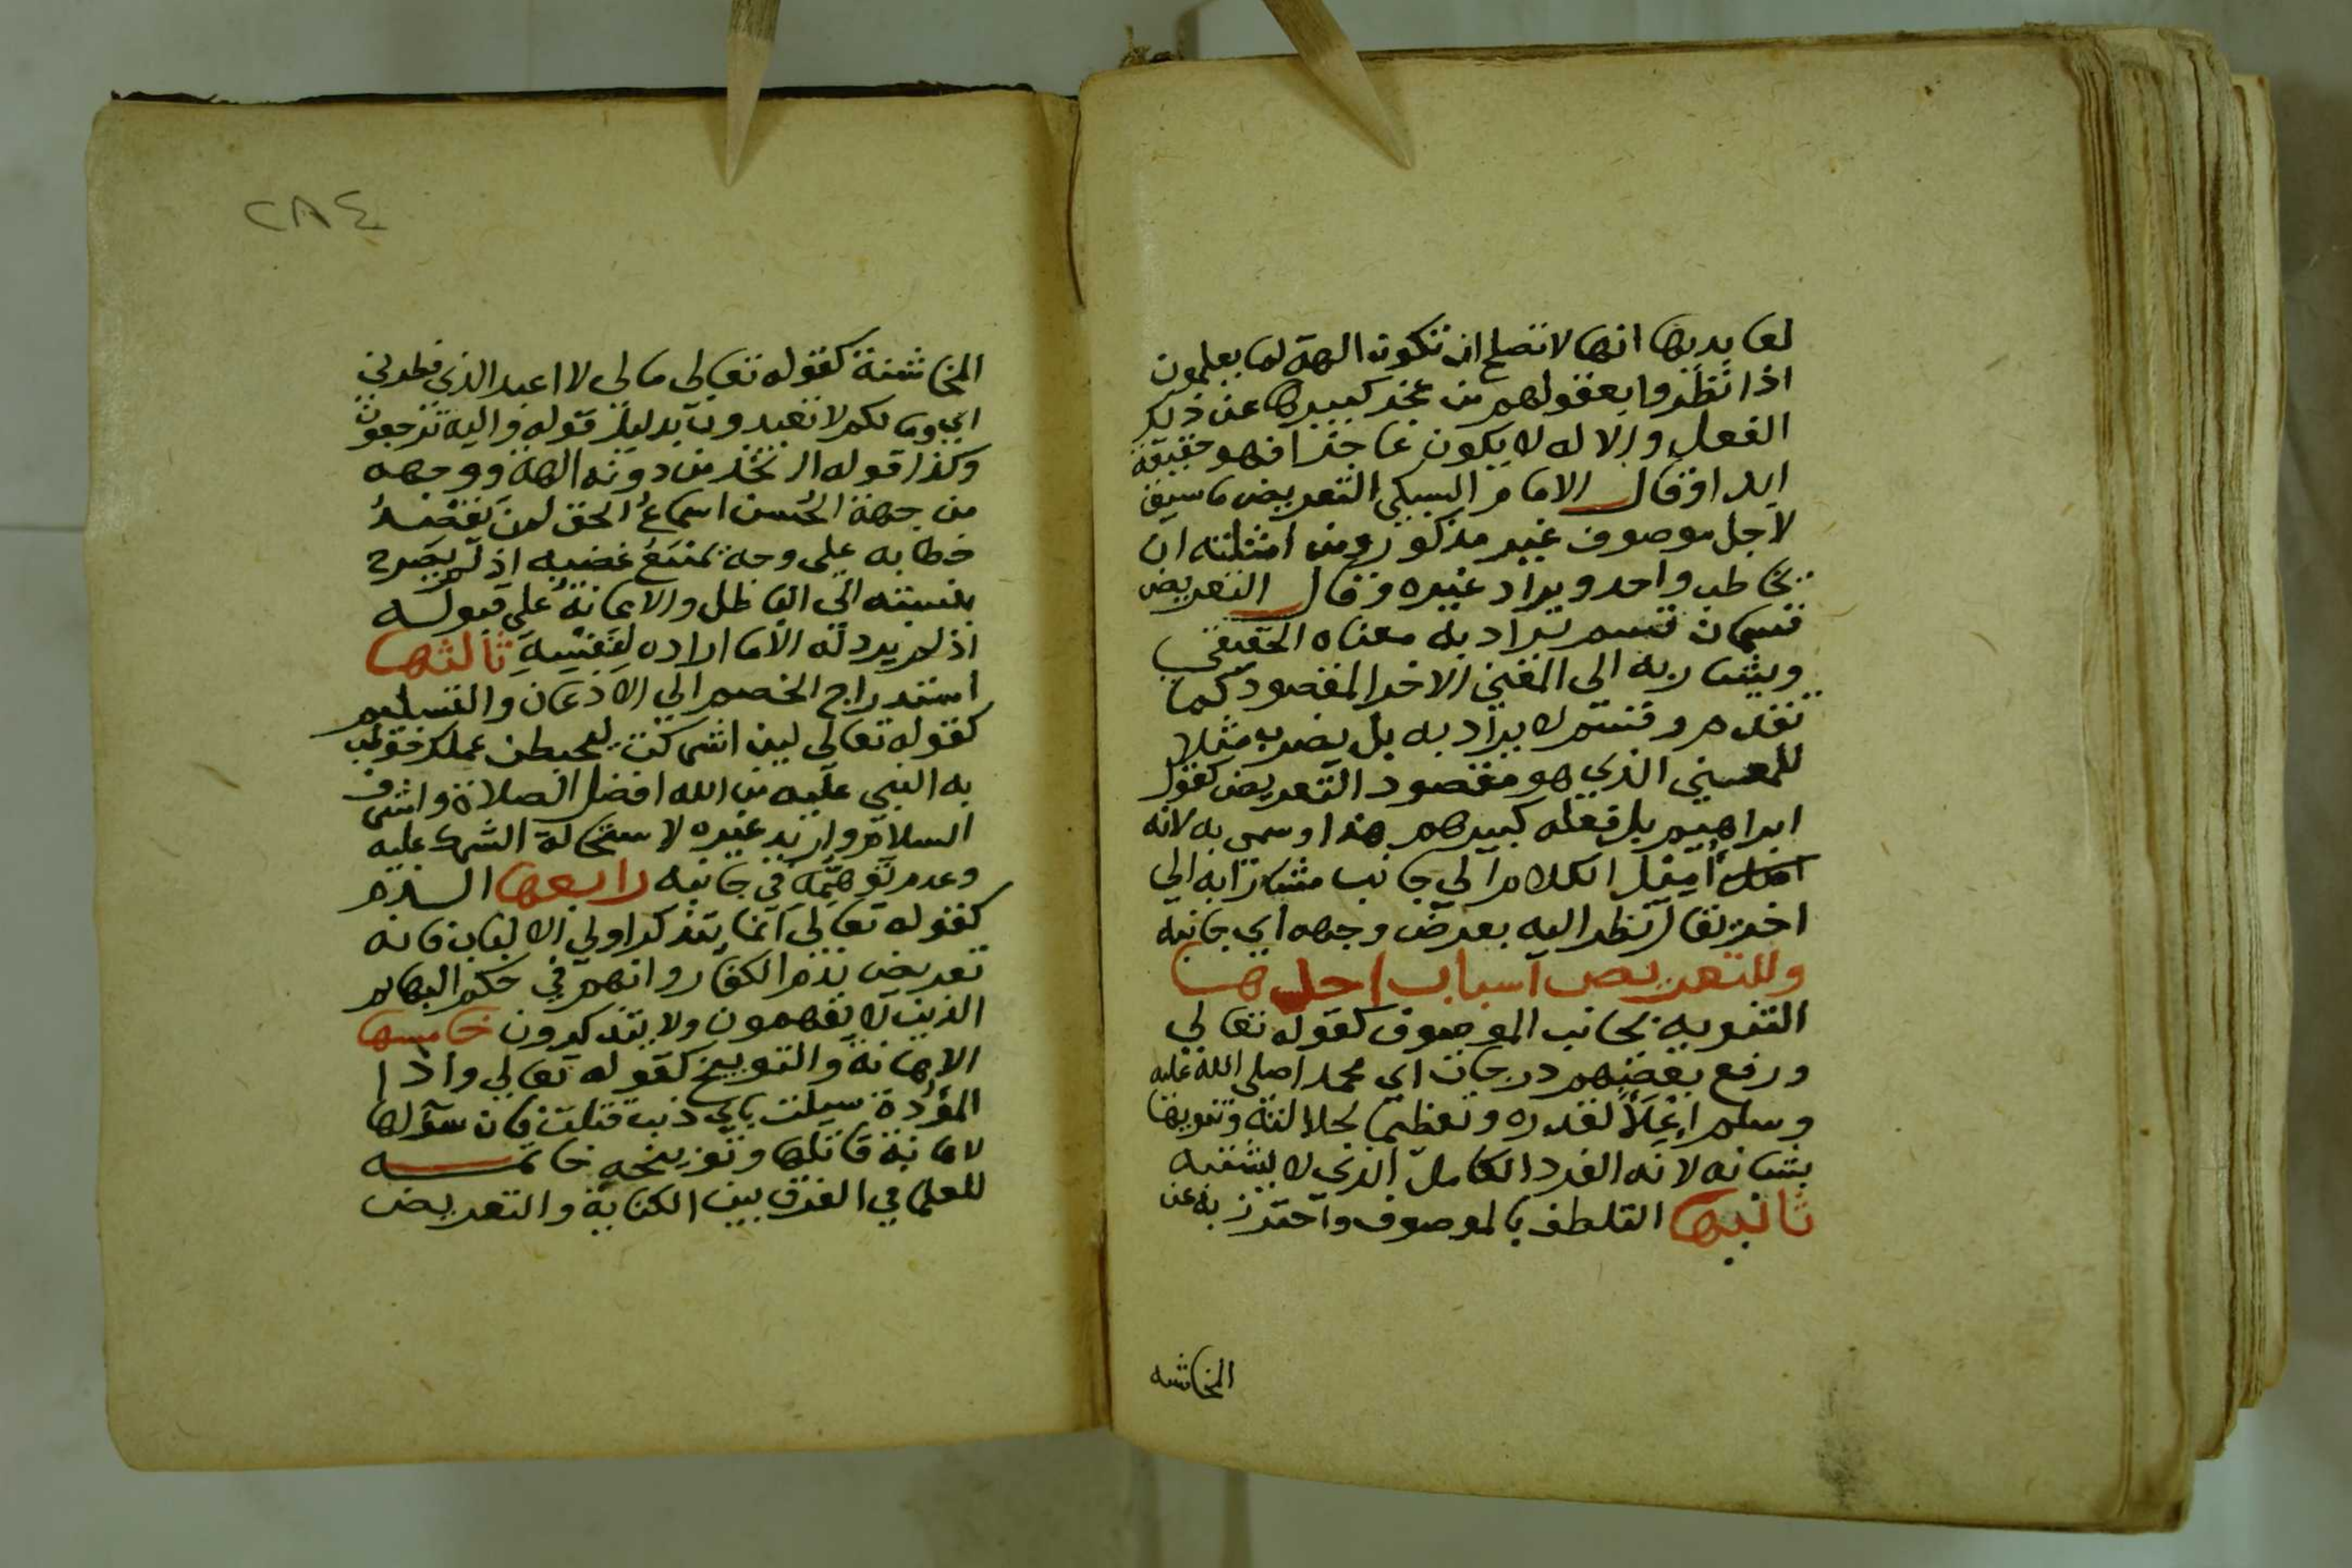 لعابديها انها لا تصلح ان تكون الهة لما يعلمون
اذا نظروا بعقولهم من عجز كبيرها عن ذلك
الفعل والاله لا يكون عاجزا فهو حقيقة
ابدا وقال الامام السبكي التعريض ما سيق
لاجل موصوف غير مذكور ومن امثلته ان
يخاطب واحد ويراد غيره وقال التعريض
قسمان قسم يراد به معناه الحقيقي
ويشار به الى المعني الاخر المقصود كما
تقدم وقسم لا يراد به بل يضرب مثلا
للمعني الذي هو مقصود التعريض كقول
ابراهيم بل فعله كبيرهم هذا وسمي به لانه
اميل الكلام الي جانب مشارا به الي
اخر يقال نظر اليه بعرض وجهه اي جانبه
وللتعريض اسباب احدها
التنويه بجانب الموصوف كقوله تعالي
ورفع بعضهم درجات اي محمدا صلي الله عليه
وسلم اعلاً لقدره وتعظيما لجلالته وتنويها
بشانه لانه الفرد الكامل الذي لا يشتبه
ثانيها التلطف بالموصوف واحترز به عن
المخاشنه
٢٨٤
المخاشنة كقوله تعالي مالي لا اعبد الذي فطرني
اي وما لكم لا تعبدون بدليل قوله واليه ترجعون
وكذا قوله ااتخذ من دونه الهة ووجهه
من جهة الحُسن اسماعُ الحق لمن يقصدُ
خطابه علي وجه يمنَعُ غضبه اذ لم يصرح
بنسبته الي الباطل والاعانةُ علي قبوله
اذ لم يرد له الا ما اراده لنفسه ثالثها
استدراج الخصم الي الاذعان والتسليم
كقوله تعالي لين اشركت ليحبطن عملك خوطب
به النبي عليه من الله افضل الصلاة واشرف
السلام واريد غيره لاستحالة الشرك عليه
وعدم توهمه في جانبه رابعها الذم
كقوله تعالي انما يتذكر اولي الالباب فانه
تعريض بذم الكفار وانهم في حكم البهايم
الذين لا يفهمون ولا يتذكرون خامسها
الاهانة والتوبيخ كقوله تعالي واذا
المؤدة سيلت باي ذنب قتلت فان سؤلها
لاهانة قاتلها وتوبيخه خاتمــه
للعلما في الفرق بين الكناية والتعريض